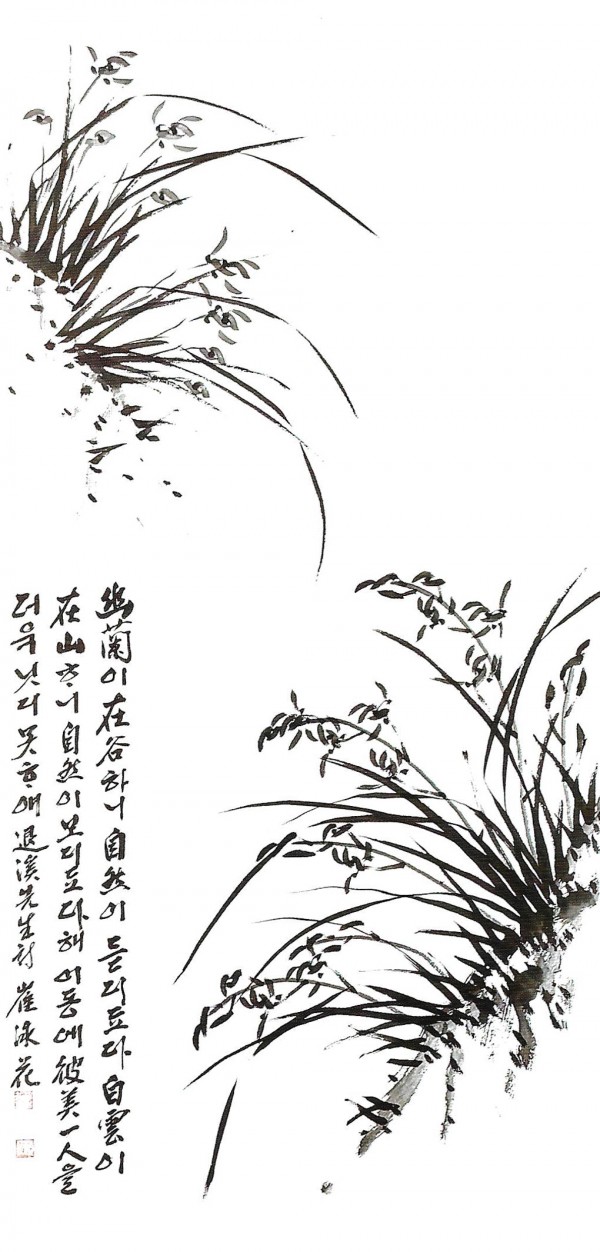 幽蘭이 在谷하니 自然이 듣디됴다 白雲이
在山ᄒᆞ니 自然이 보디됴다해 이듕에 彼美一人을
더욱 닛디 못ᄒᆞ애 退溪先生詩 崔泳花